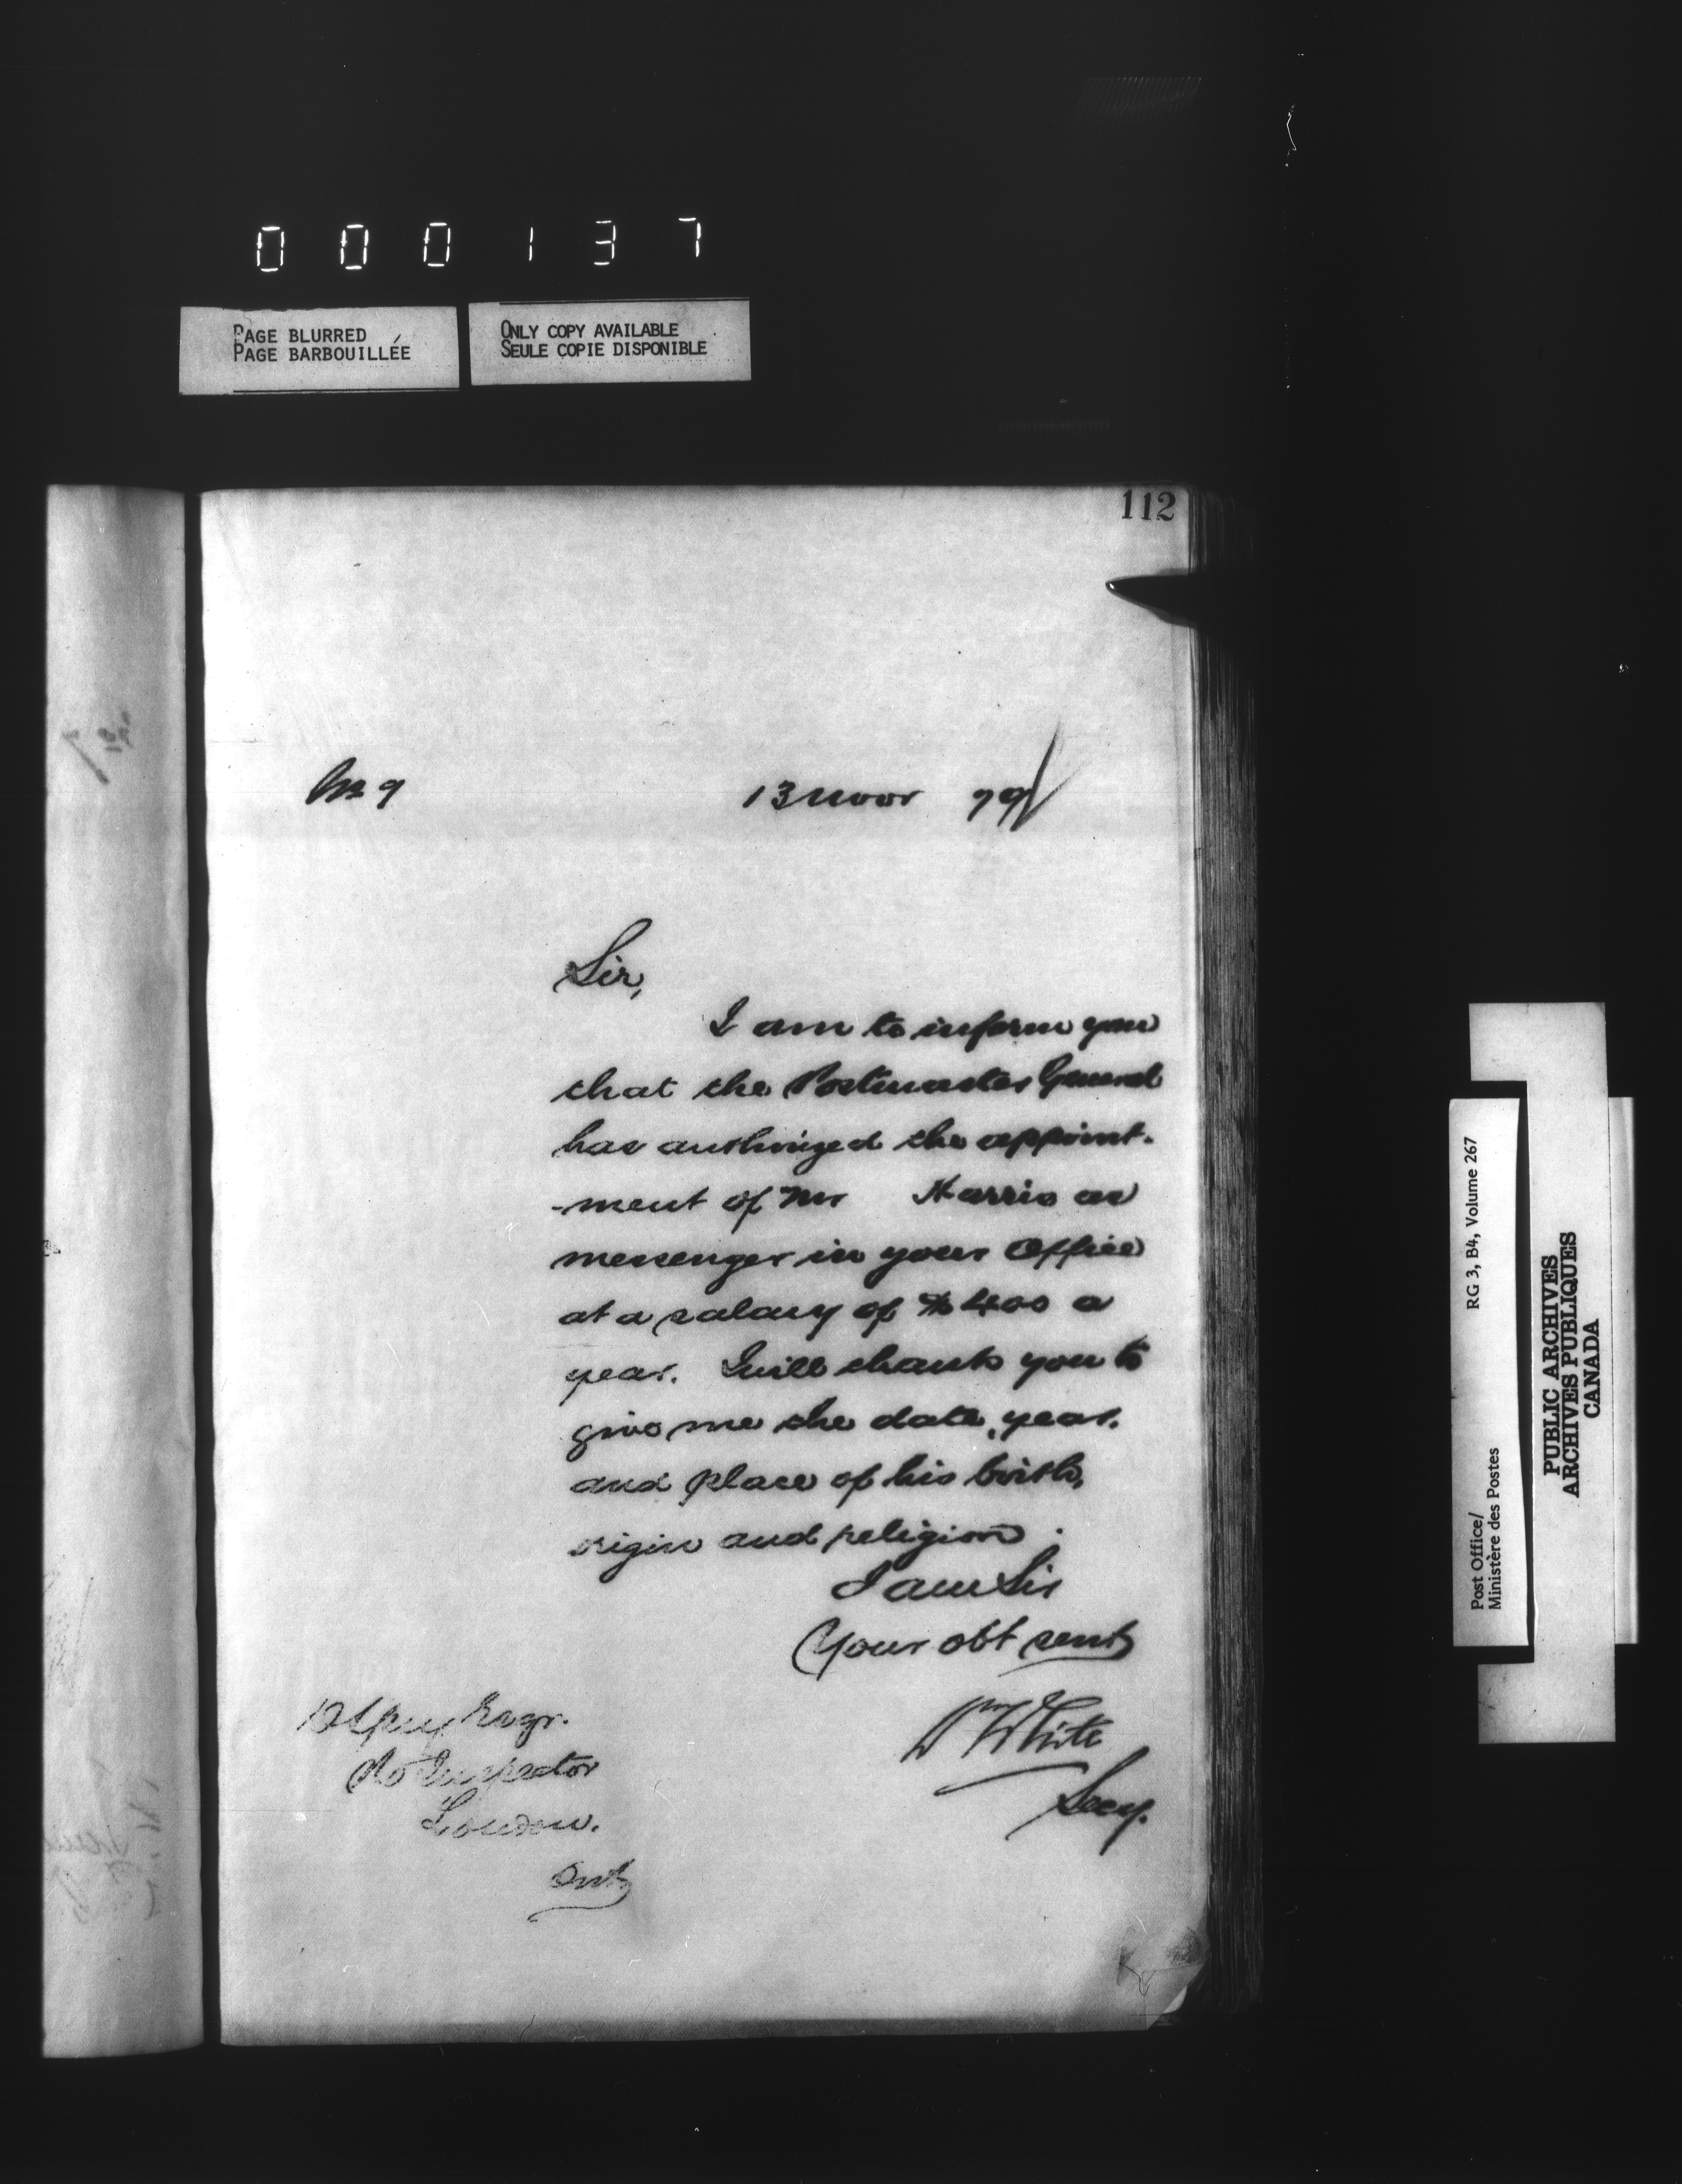 000137
PAGE BLURRED
PAGE BARBOUILLÉE
ONLY COPY AVAILABLE
SEULE COPIE DISPONIBLE
112
No 9
13 Novr 79
Sir,
I am to inform you
that the Postmaster General
has authorized the appoint-
-ment of Mr Harris as
messenger in your Office
at a salary of $400 a
year. I will thank you to
give me the date, year,
and place of his birth,
origin and religion.
I am Sir
Your obt servt
Wm White
Secy.
Esqr.
PO Inspector
London.
Ont
RG 3, B4, Volume 267
Post Office/
Ministère des Postes
PUBLIC ARCHIVES
ARCHIVES PUBLIQUES
CANADA